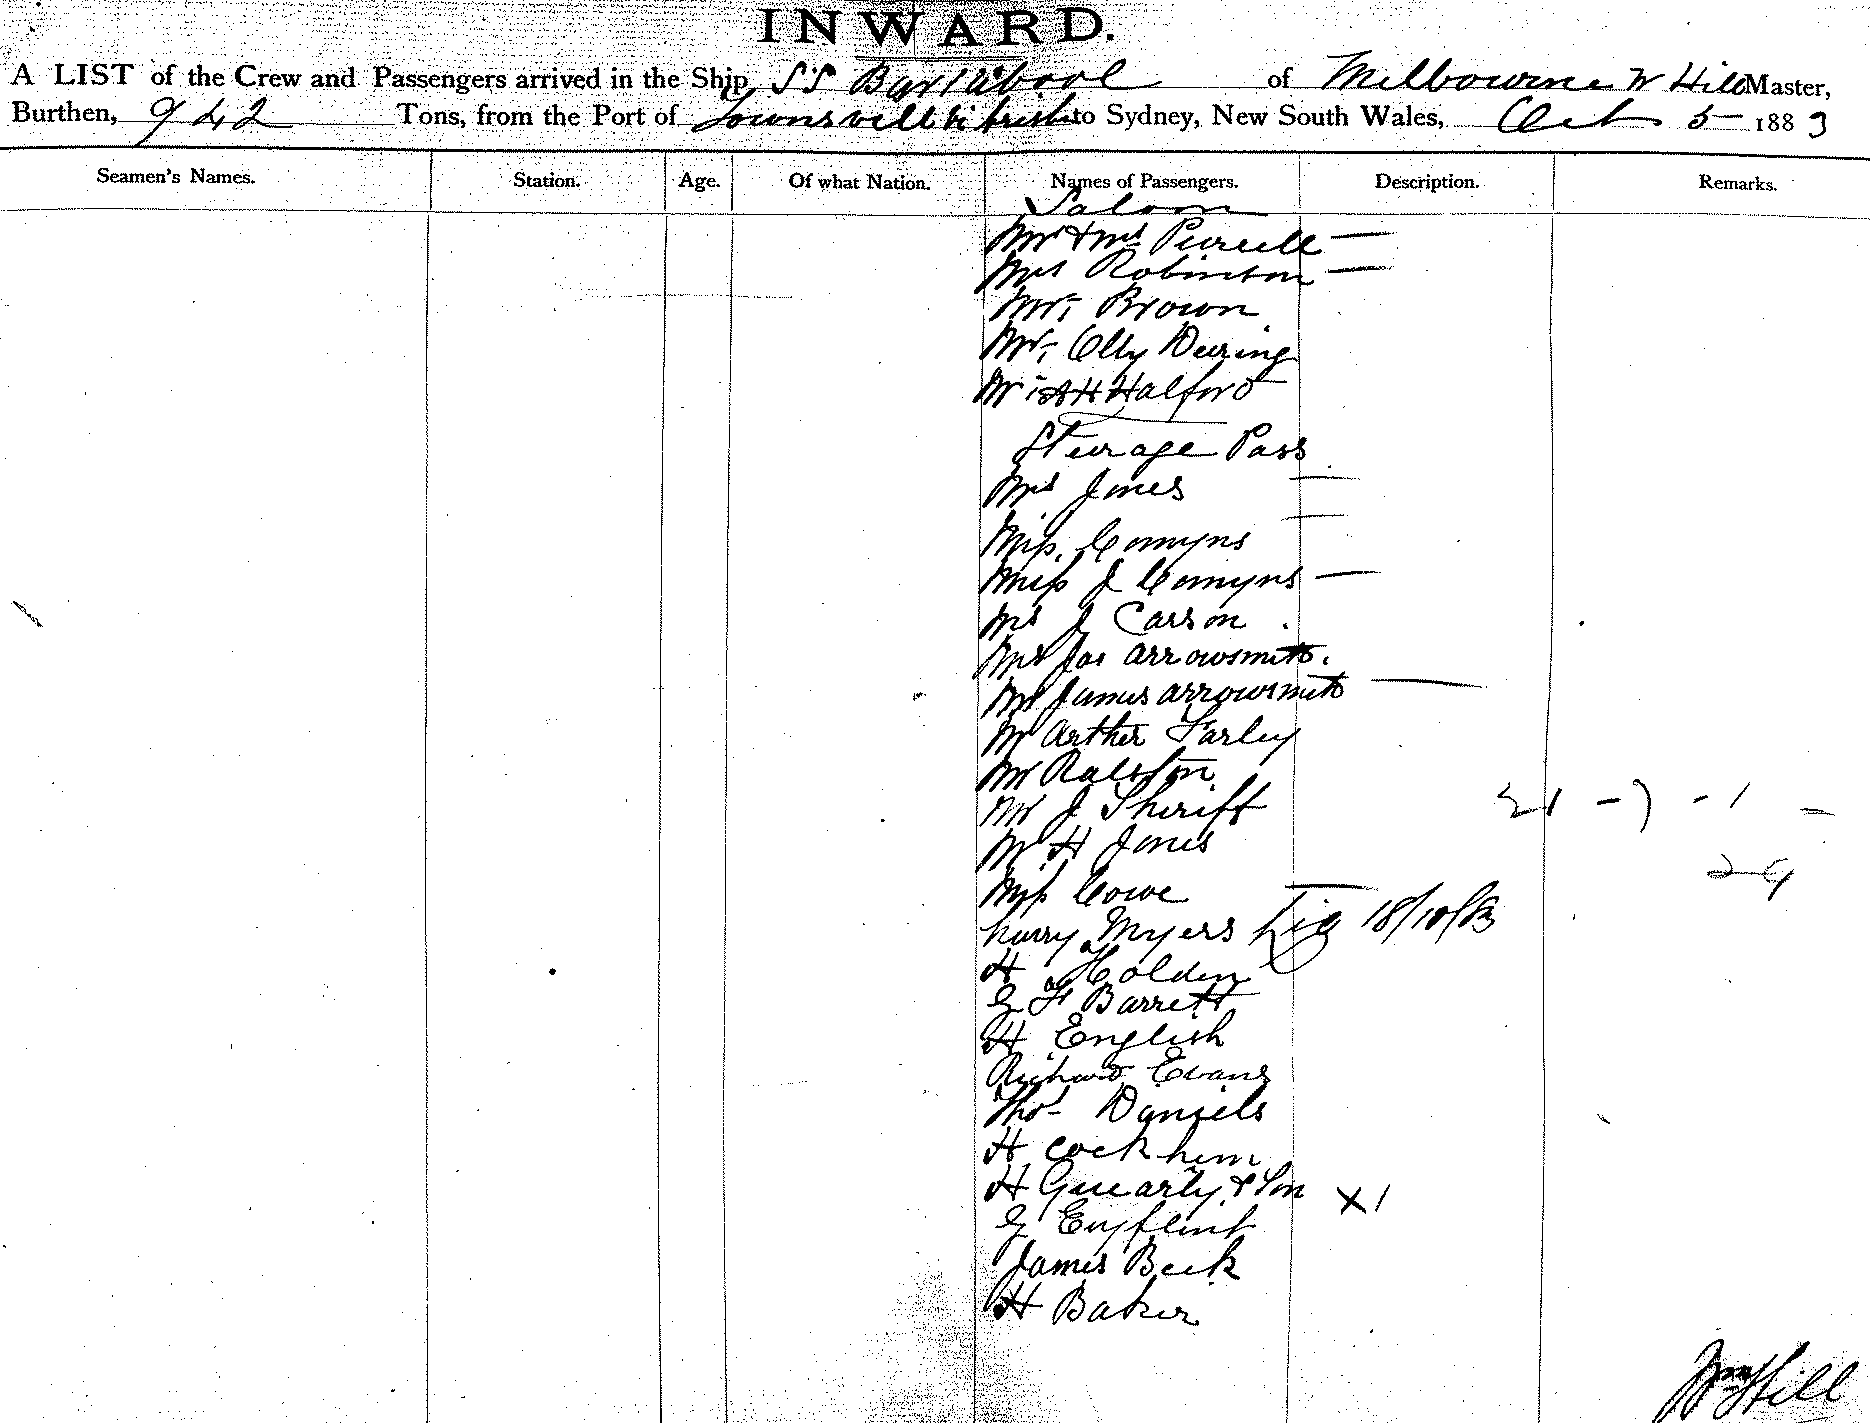 INWARD.
A LIST of the Crew and Passengers arrived in the Ship SS Barrabool of Melbourne W Hill Master,
Burthen, 942 Tons, from the Port of Townsville to Sydney, New South Wales, Oct 5 1883
Seamen's Names. Station. Age. Of what Nation. Names of Passengers. Description. Remarks.
Saloon
Mr & Mrs Purcell —
Mrs Robinson —
Mr. Brown
Mr. Olly Deering
Mr A H Halford
Steerage Pass
Mrs Jones —
Miss Comyns —
Miss J Comyns —
Mr J Carson
Mr Jas Arrowsmith.
Mrs James Arrowsmith —
Mr Arther Farley
Mr Ralston
Mr J Sheriff
21 - 7 - 1 =
Mr H Jones
29
Miss Cowe —
harry Myers 18/10/83
H Holden
G F Barrett
H English
Richard Evans
Thos Daniels
H Cockhem
H & Son X 1
G
James Beck
H Baker
Wm Hill